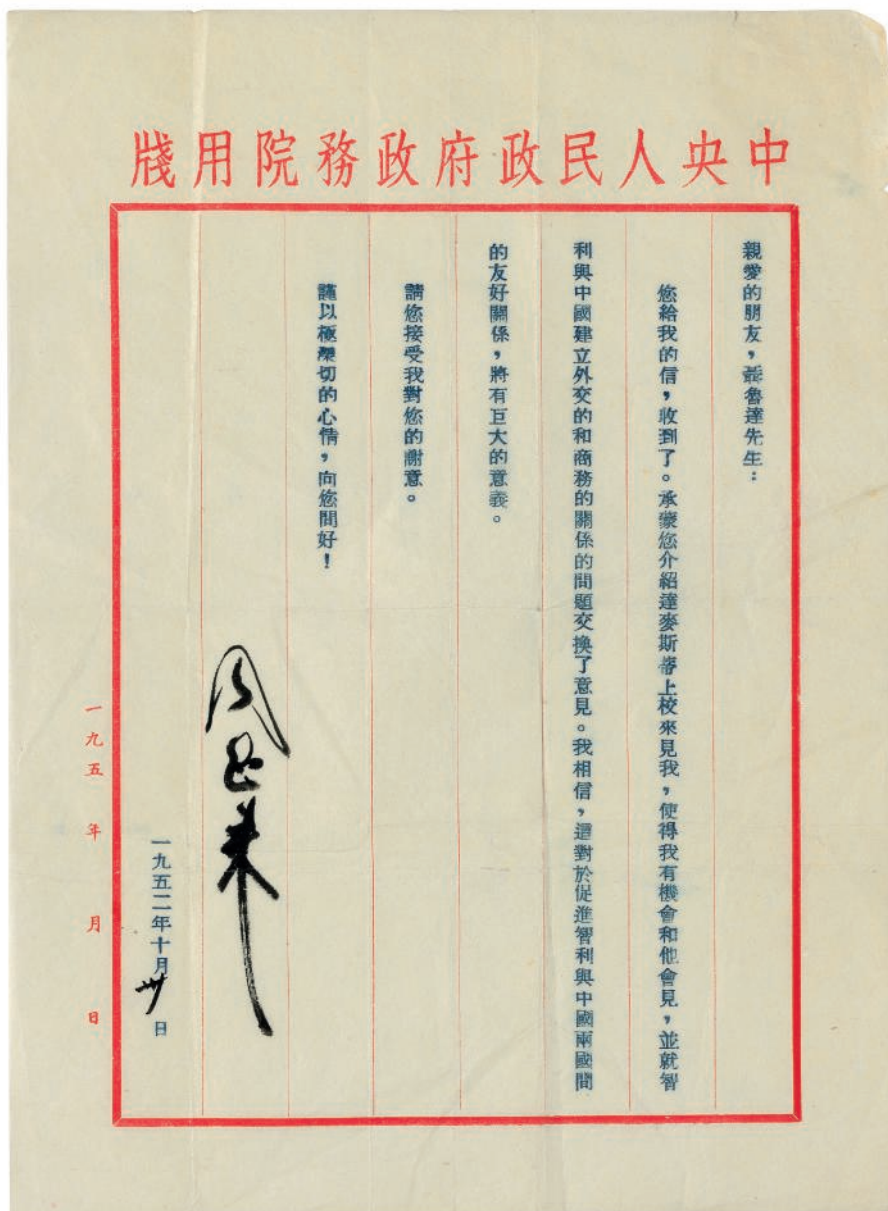 中央人民政府政務院用牋
親愛的朋友,聶魯達先生:
您給我的信,收到了。承蒙您介紹達麥斯蒂上校來見我,使得我有機會和他會見,並就智
利與中國建立外交的和商務的關係的問題交換了意見。我相信,這對於促進智利與中國兩國間
的友好關係,將有巨大的意義。
請您接受我對您的謝意。
謹以極深切的心情,向您問好!
周恩來
一九五二年十月卅日
一九五 年 月 日